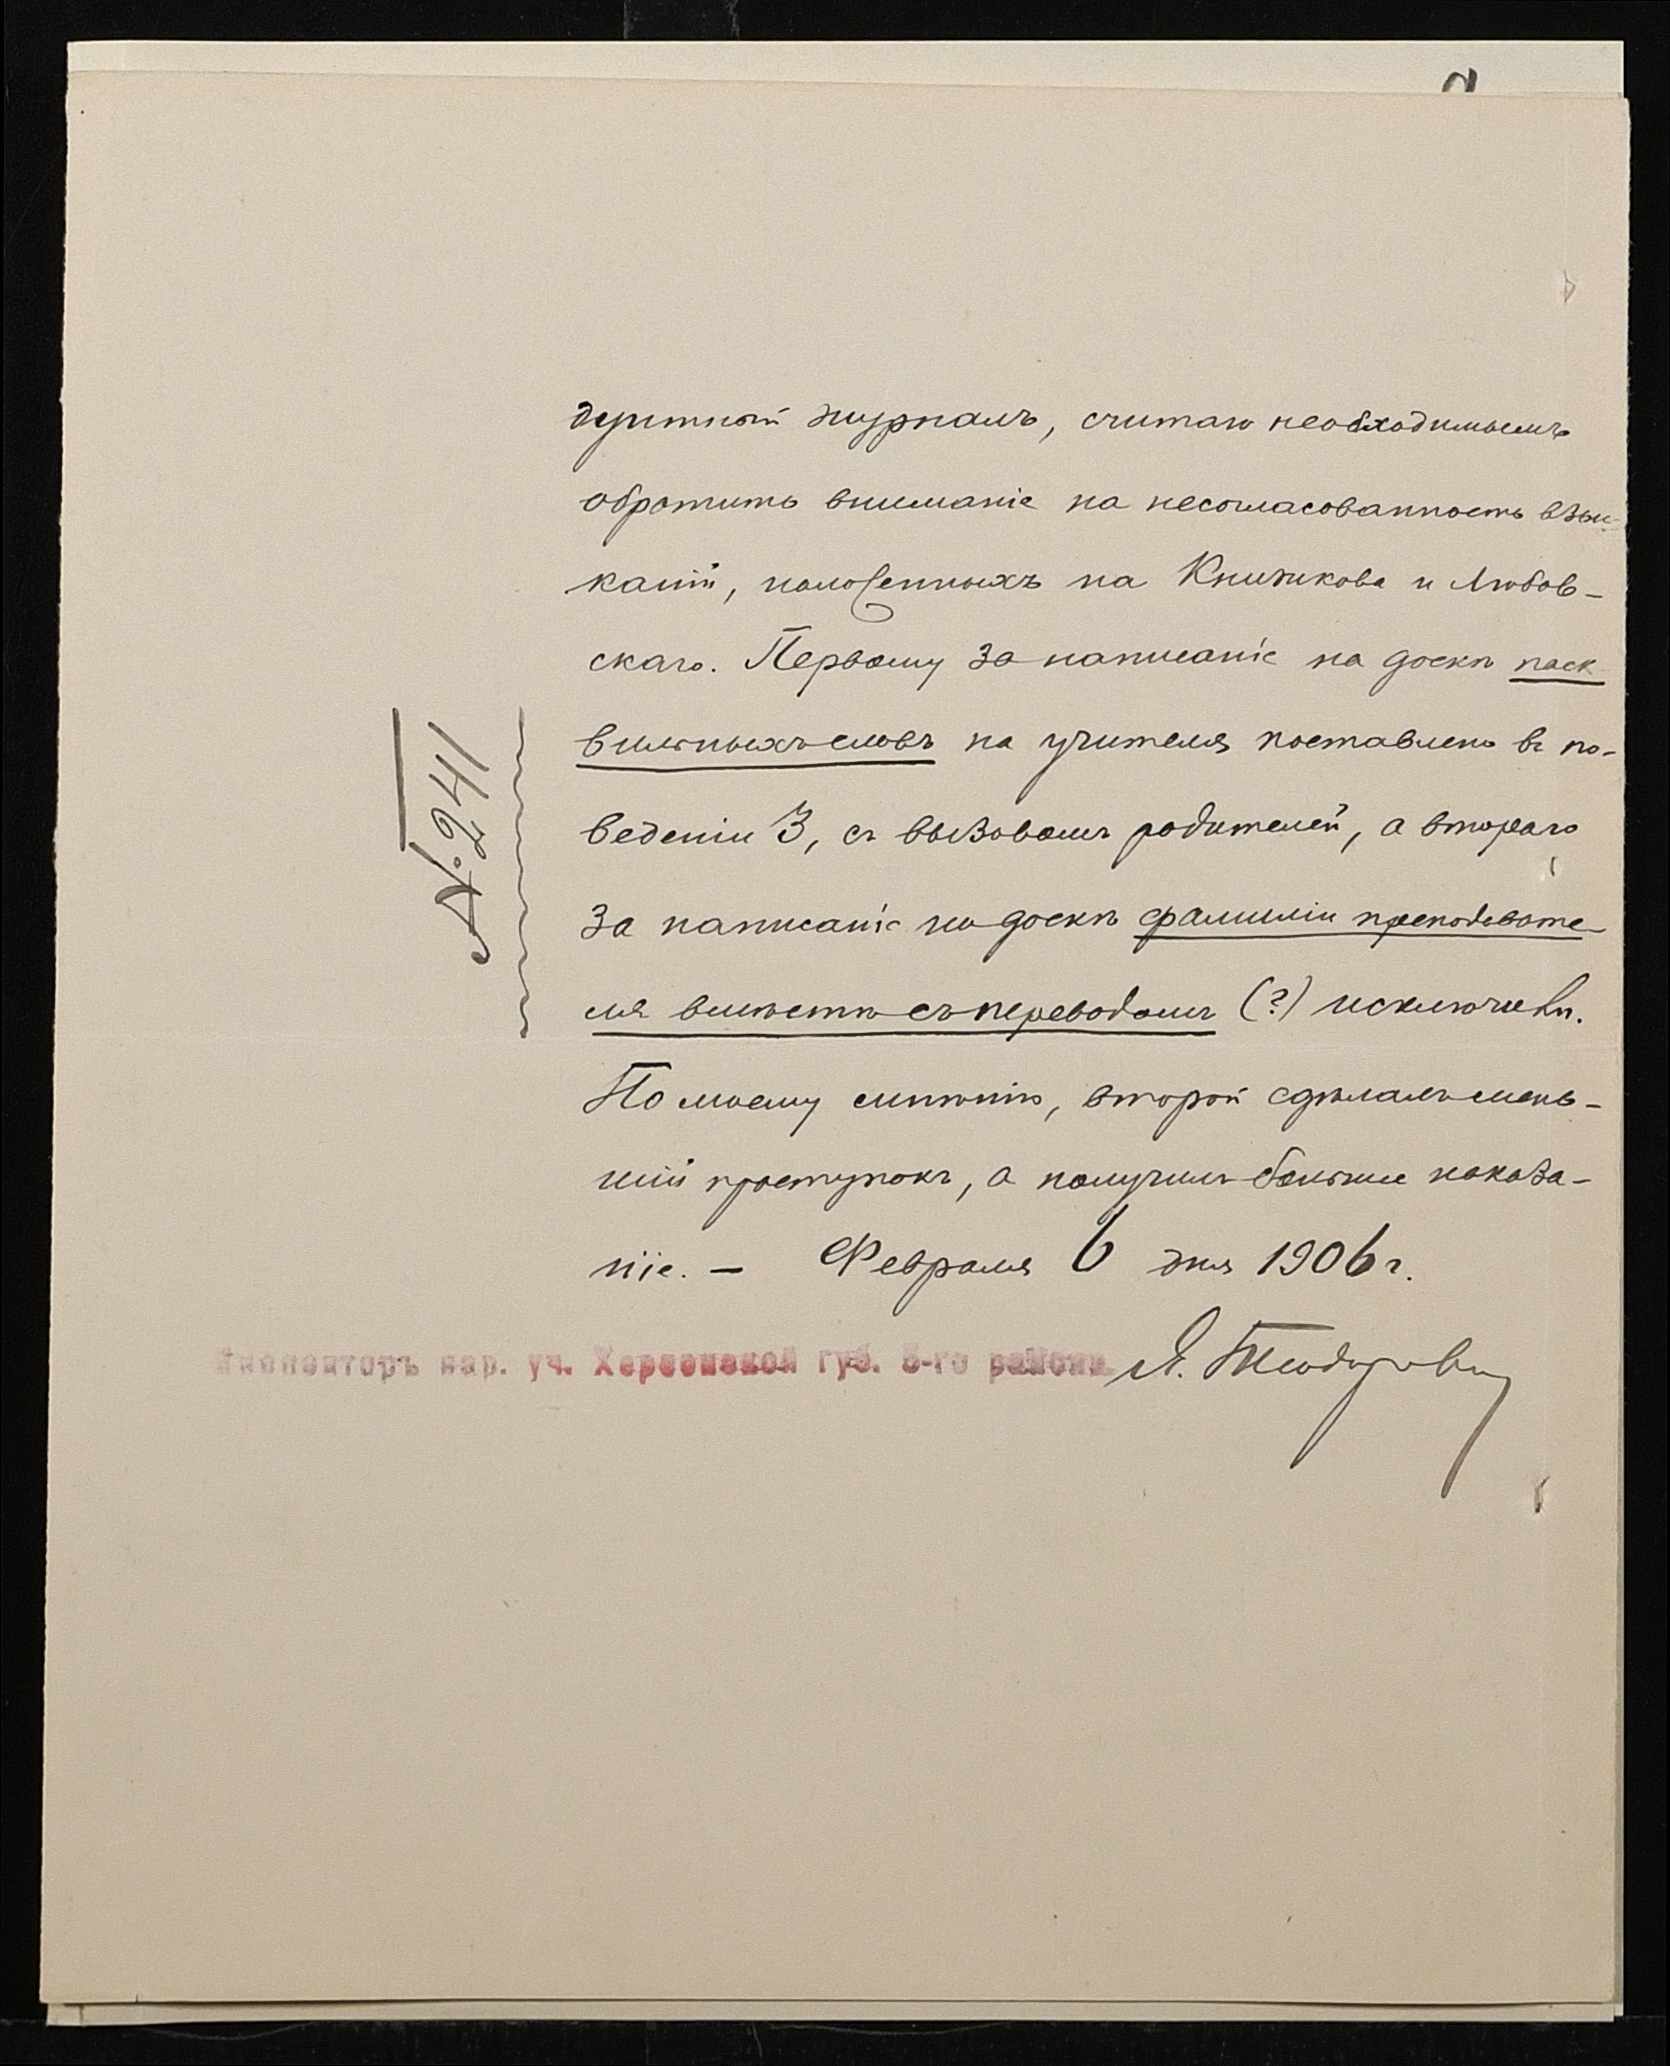 дуитный журналъ, считаю необходимымъ
обратить вниманіе на несогласованность взыс-
каній, положенныхъ на Книжкова и Любов-
скаго. Первому за написаніе на доскѣ паск
вильныхъ словъ на учителя поставлено въ по-
веденіи 3, съ вызовомъ родителей, а втораго
за написаніе на доскѣ фамиліи преподавате-
ля вмѣстѣ съ переводомъ (?) исключен.
По моему мнѣнію, второй сдѣлалъ мень-
шій проступокъ, а получилъ большее наказа-
ніе. – Февраля 6 дня 1906 г.
Инспекторъ нар. уч. Херсонской губ. 5-го района
№ 241